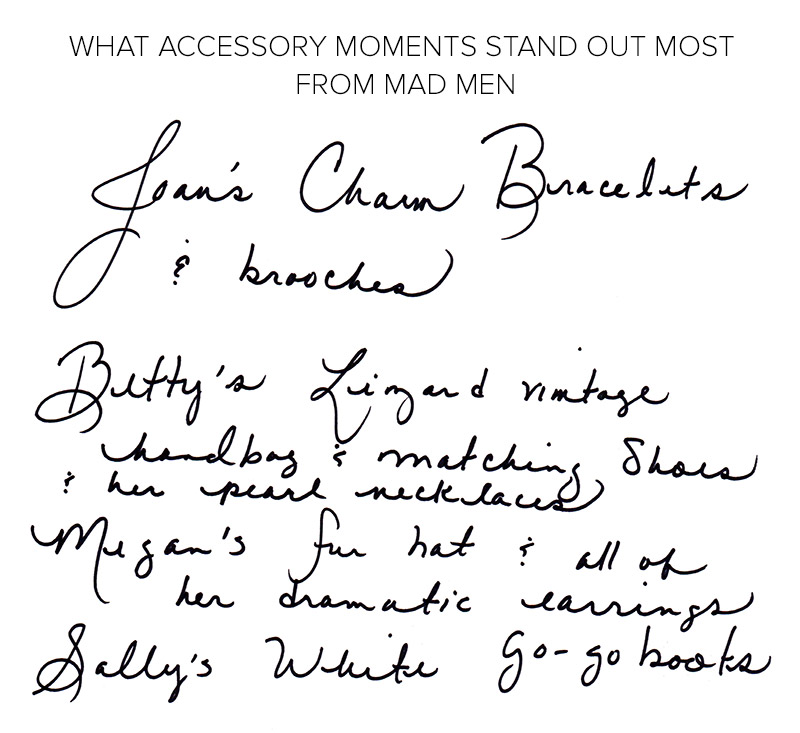 WHAT ACCESSORY MOMENTS STAND OUT MOST
FROM MAD MEN
Joan's Charm Bracelets
& brooches
Betty's Lizard vintage
handbag & matching Shoes
& her pearl necklaces
Megan's fur hat & all of
her dramatic earrings
Sally's White Go-go boots